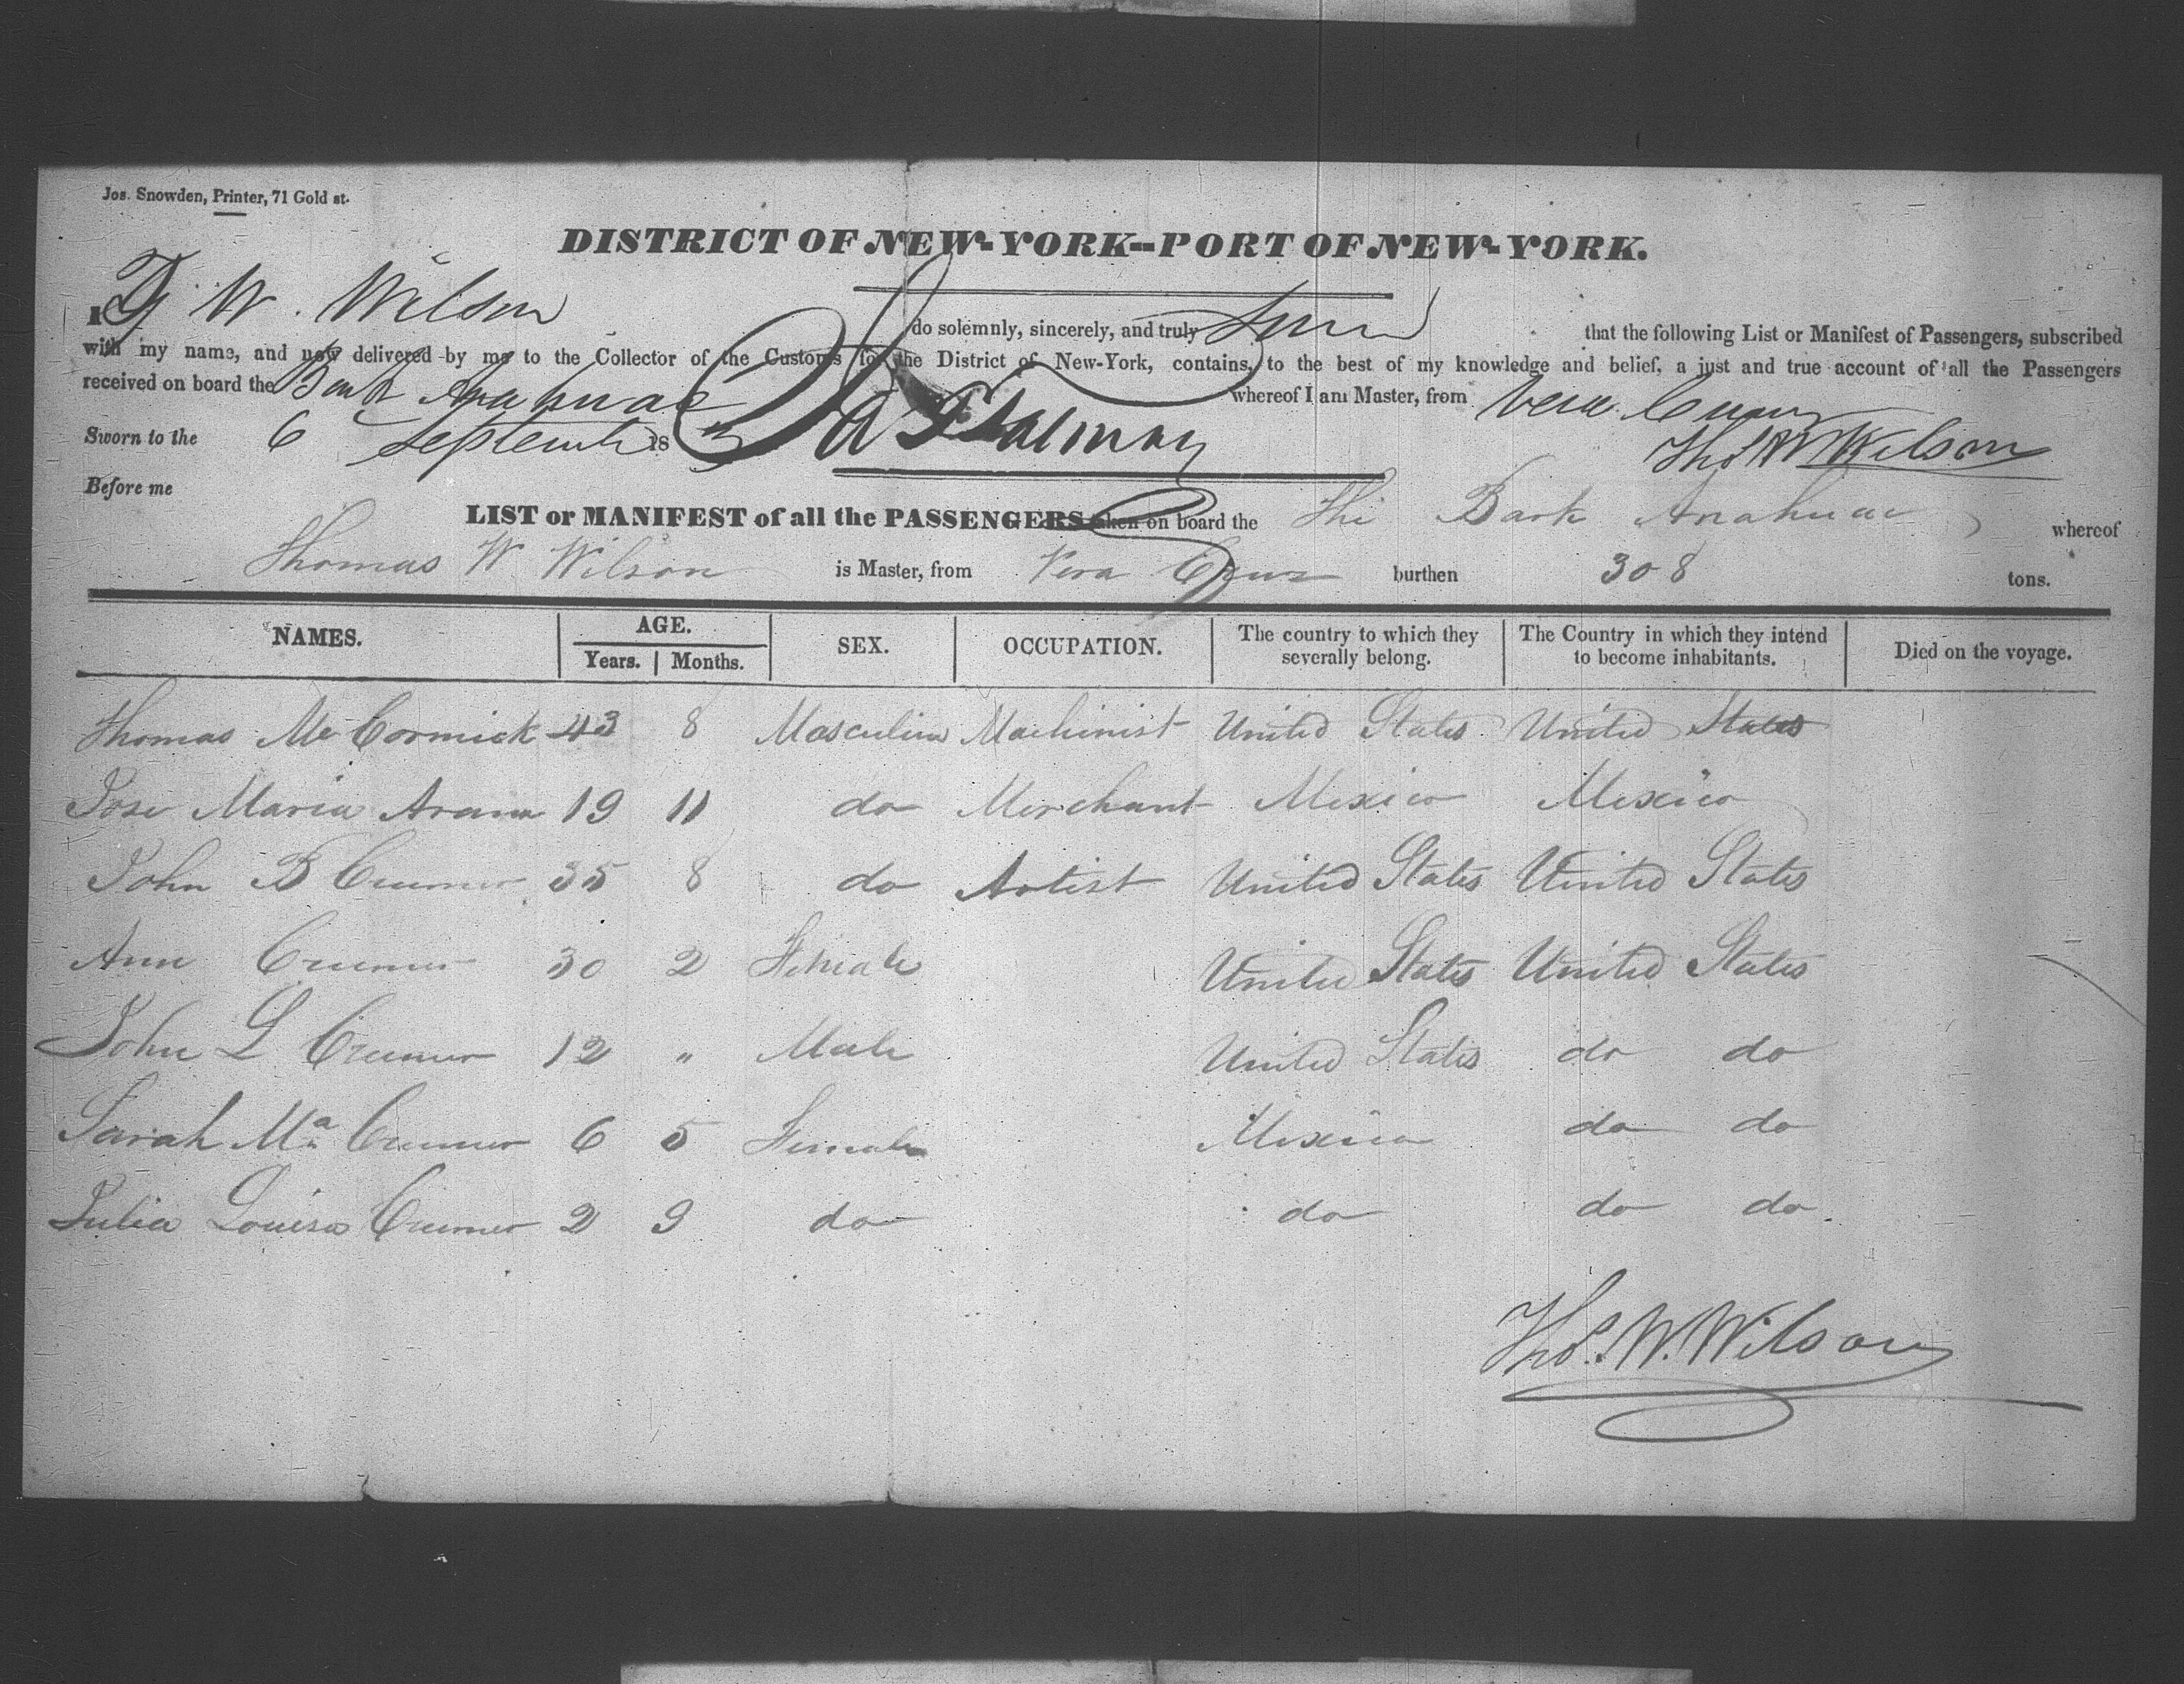 Jos. Snowden, Printer, 71 Gold st.
DISTRICT OF NEW-YORK--PORT OF NEW-YORK.
I W. Wilson do solemnly, sincerely, and truly that the following List or Manifest of Passengers, subscribed
with my name, and now delivered by me to the Collector of the Customs for the District of New-York, contains, to the best of my knowledge and belief, a just and true account of all the Passengers
received on board the Bark Anahuac whereof I am Master, from Vera Cruz
Sworn to the 6 September 18 Thos W Wilson
Before me
LIST or MANIFEST of all the PASSENGERS taken on board the The Bark Anahuac whereof
Thomas W Wilson is Master, from Vera Cruz burthen 308 tons.
NAMES. AGE. Years. Months. SEX. OCCUPATION. The country to which they severally belong. The Country in which they intend to become inhabitants. Died on the voyage.
Thomas McCormick 43 8 Masculine Machinist United States United States
Jose Maria Arana 19 11 do Merchant Mexico Mexico
John B 35 8 do Artist United States United States
Ann 30 2 Female United States United States
John L 12 " Male United States do do
Sarah Ma 6 5 Female Mexico do do
Julia Louisa 2 9 do do do do
Thos. W. Wilson